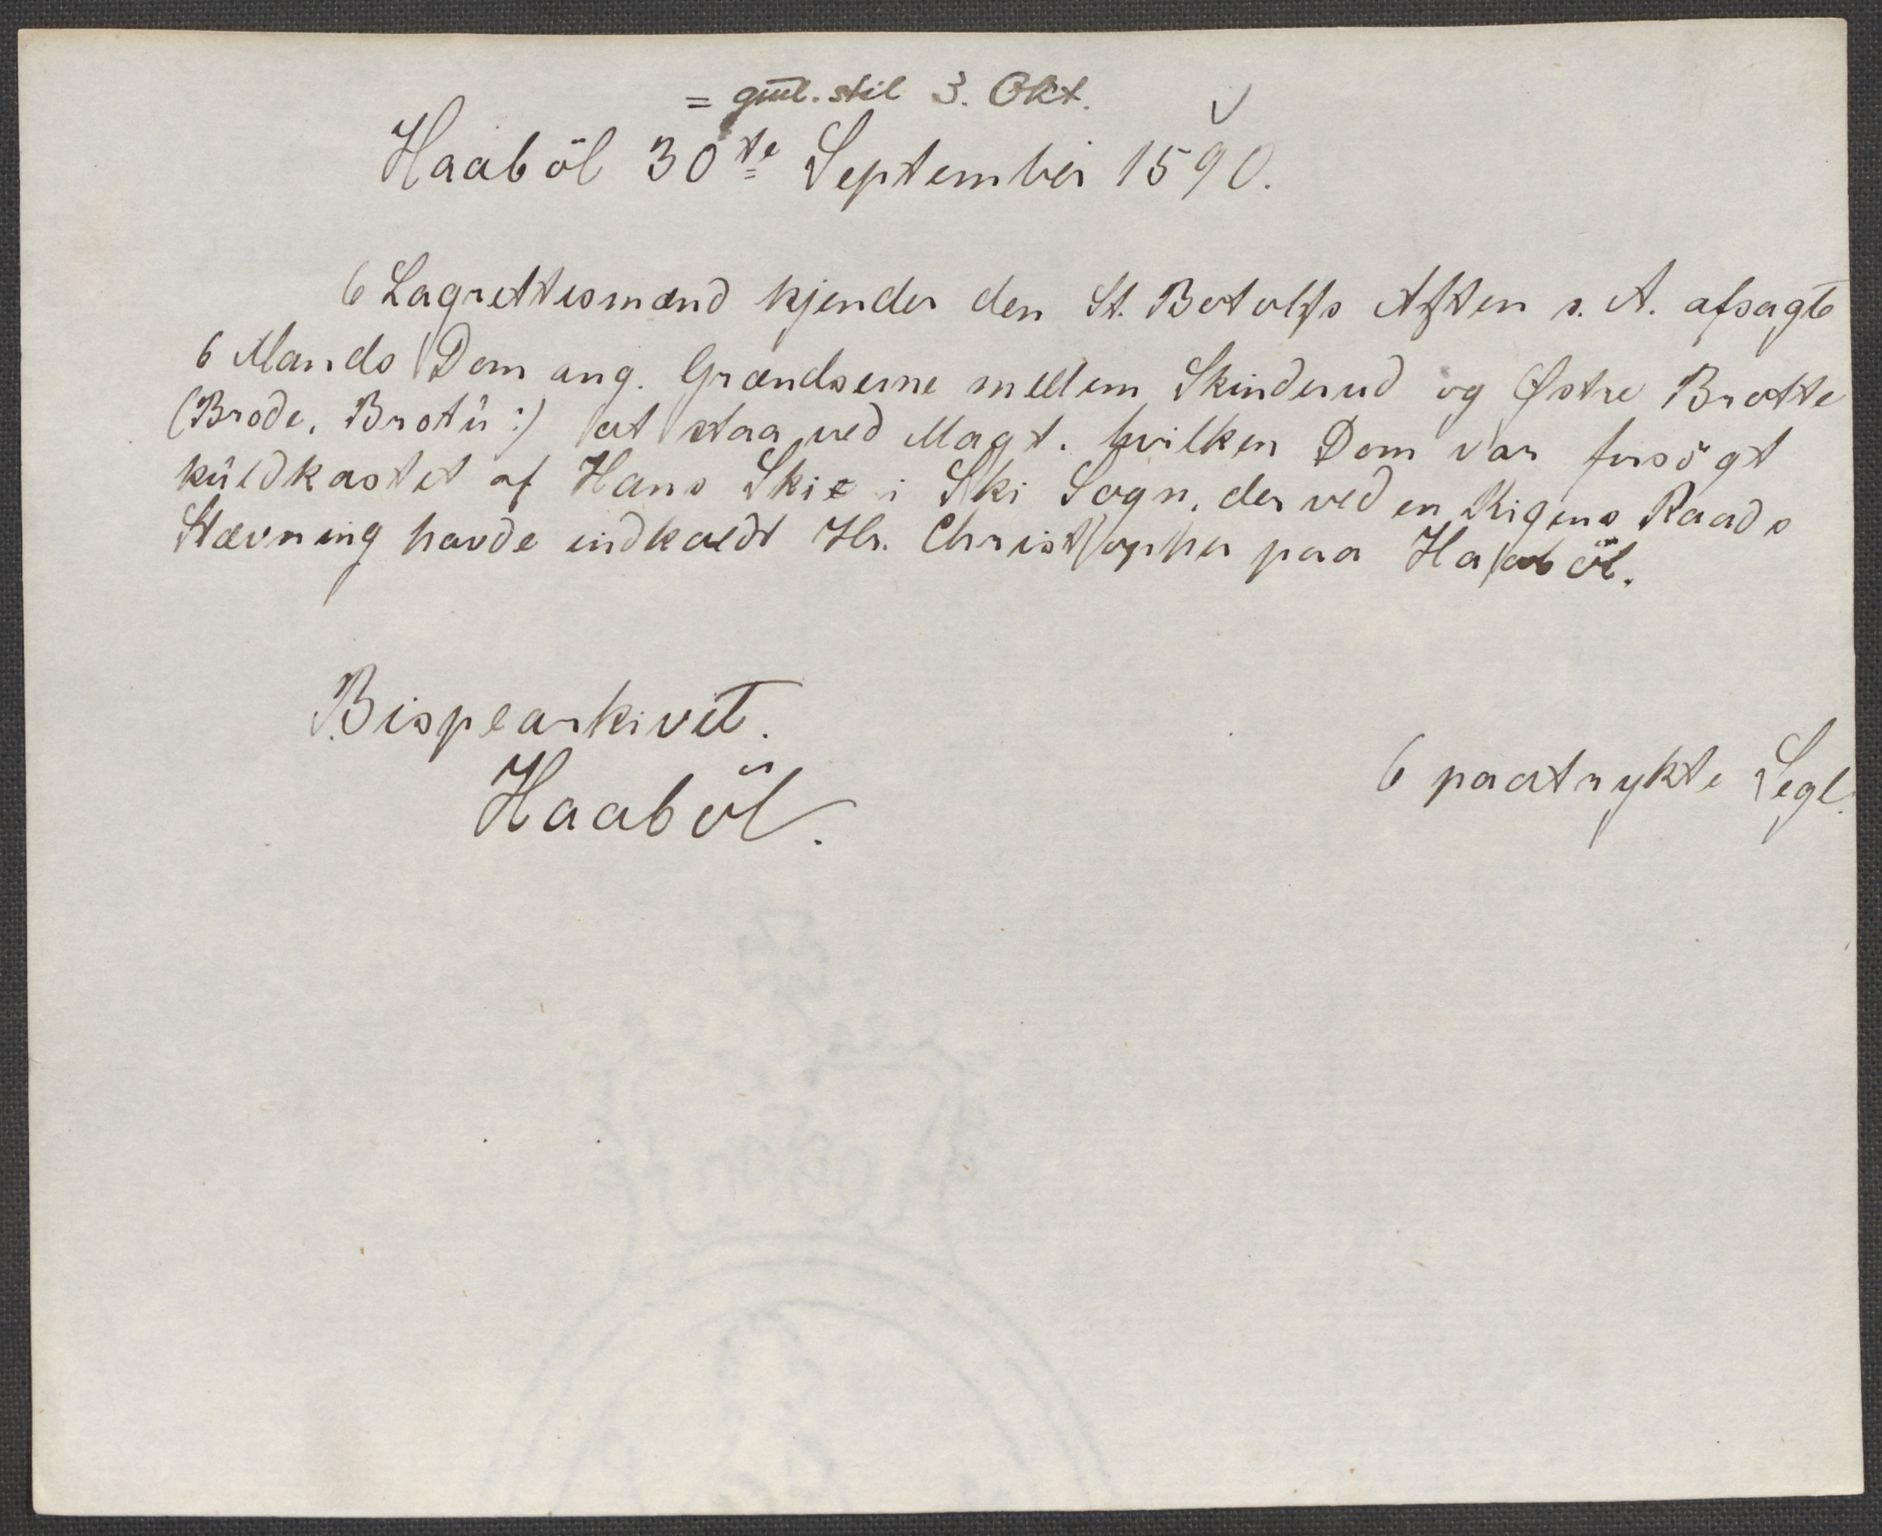 = gml. stil 3. Okt.
Haaböl 30te September 1590.
6 Lagrettesmænd kjender den St. Botolfs Aften s. A. afsagte
6 Mands Dom ang. Grændserne mellem Skinderud og Østre Brotte
(Brode, Brotů:) at staa ved Magt. hvilken Dom var forsögt
kůldkastet af Hans Skie i Ski Sogn, der ved en Rigens Raads
Stævning havde indkaldt Hr. Christopher paa Haaböl.
Bispearkivet.
Haaböl.
6 paatrykte Segl.